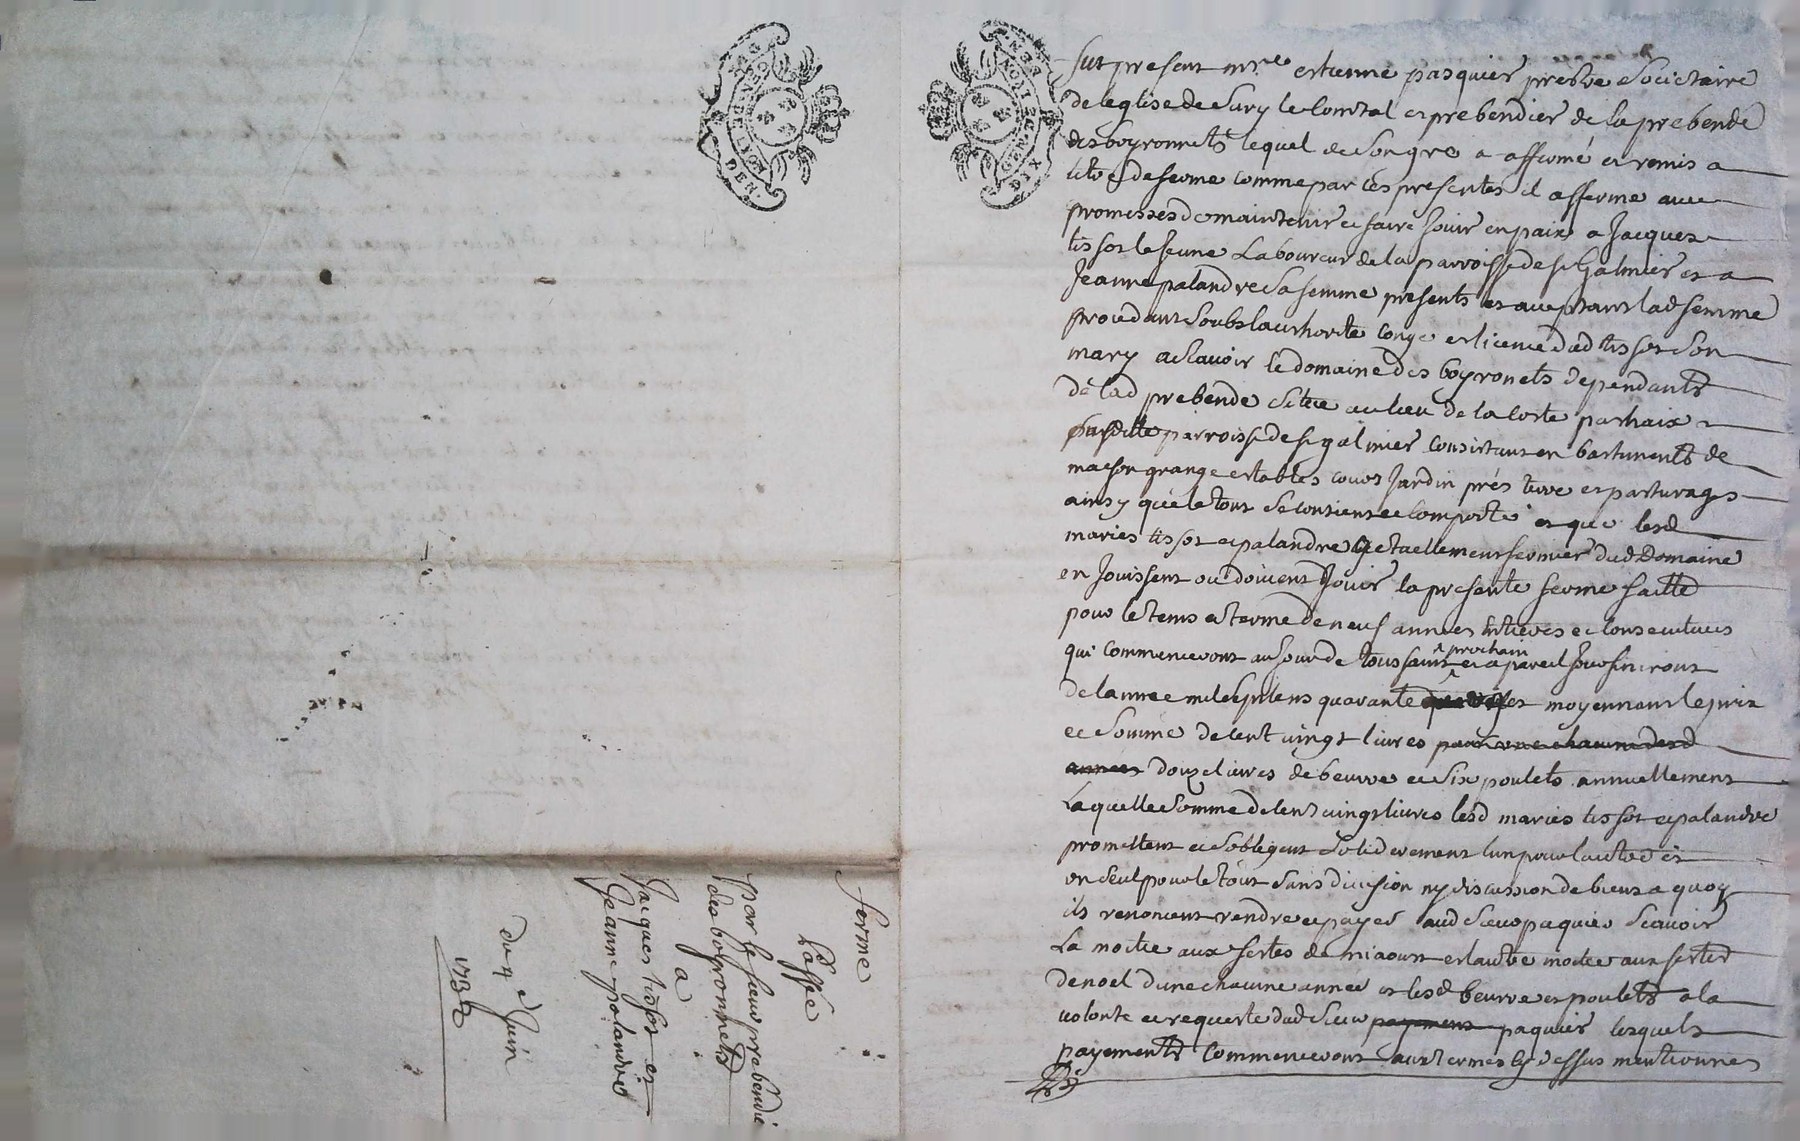 GENERATION DE LION
DEN.
GENERATION DE LION
DIX DEN
fut present mre estienne pasquier prestre societaire
de leglise de Sury le Comtal et prebendier de la prebende
des boyronnets lequel de son gre a affermé et remis a
titre de ferme comme par ces presentes il afferme avec
promesses de maintenir et faire Jouir en paix a Jacques
tissot le Jeune Laboureur de la parroisse de st Galmier et a
Jeanne palandre sa femme presents et acceptants lad femme
procedant soubs lauthorite conge et licence dud tissot son
mary a scavoir le domaine des boyronets dependants
de lad prebende situe au lieu de la Coste
parroisse de st galmier consistant en bastiments de
maison grange estables cour Jardin prés terre et pasturages
ainsy que le tout se contient et comporte et que lesd
maries tissot et palandre actuellement fermier dud Domaine
en Jouissent ou doivent Jouir la presente ferme faitte
pour le tems et terme de neuf annees entieres et consecutives
qui commenceront au Jour de toussaint prochain et a pareil Jour finiront
de lannee mil sept cens quarante moyennant le prix
et somme de cent vingt livres pour une chacune desd
annees douze livres de beurre et six poulets annuellement
Laquelle somme de cent vingt livres lesd maries tissot et palandre
promettent et sobligent solidairement lun pour lautre et
un seul pour le tout sans division ny discussion de biens a quoy
ils renoncent rendre et payer aud sieur paquier scavoir
La moitie aux festes de miaoust et lautre moitie aux festes
de noel dune chacune annee et lesd beurre et poulets a la
volonte et requeste dud sieur payment paquier lesquels
payements commenceront aux termes cy dessus mentionnes
ferme
Passée
par le sieur prebendié
des boyronnets
a
Jacques tissot et
Jeanne palandre
du 4 Juin
1732